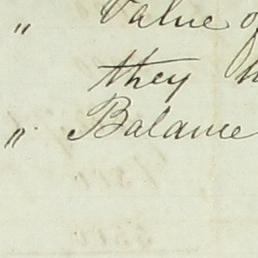 " Value of
they
" Balance